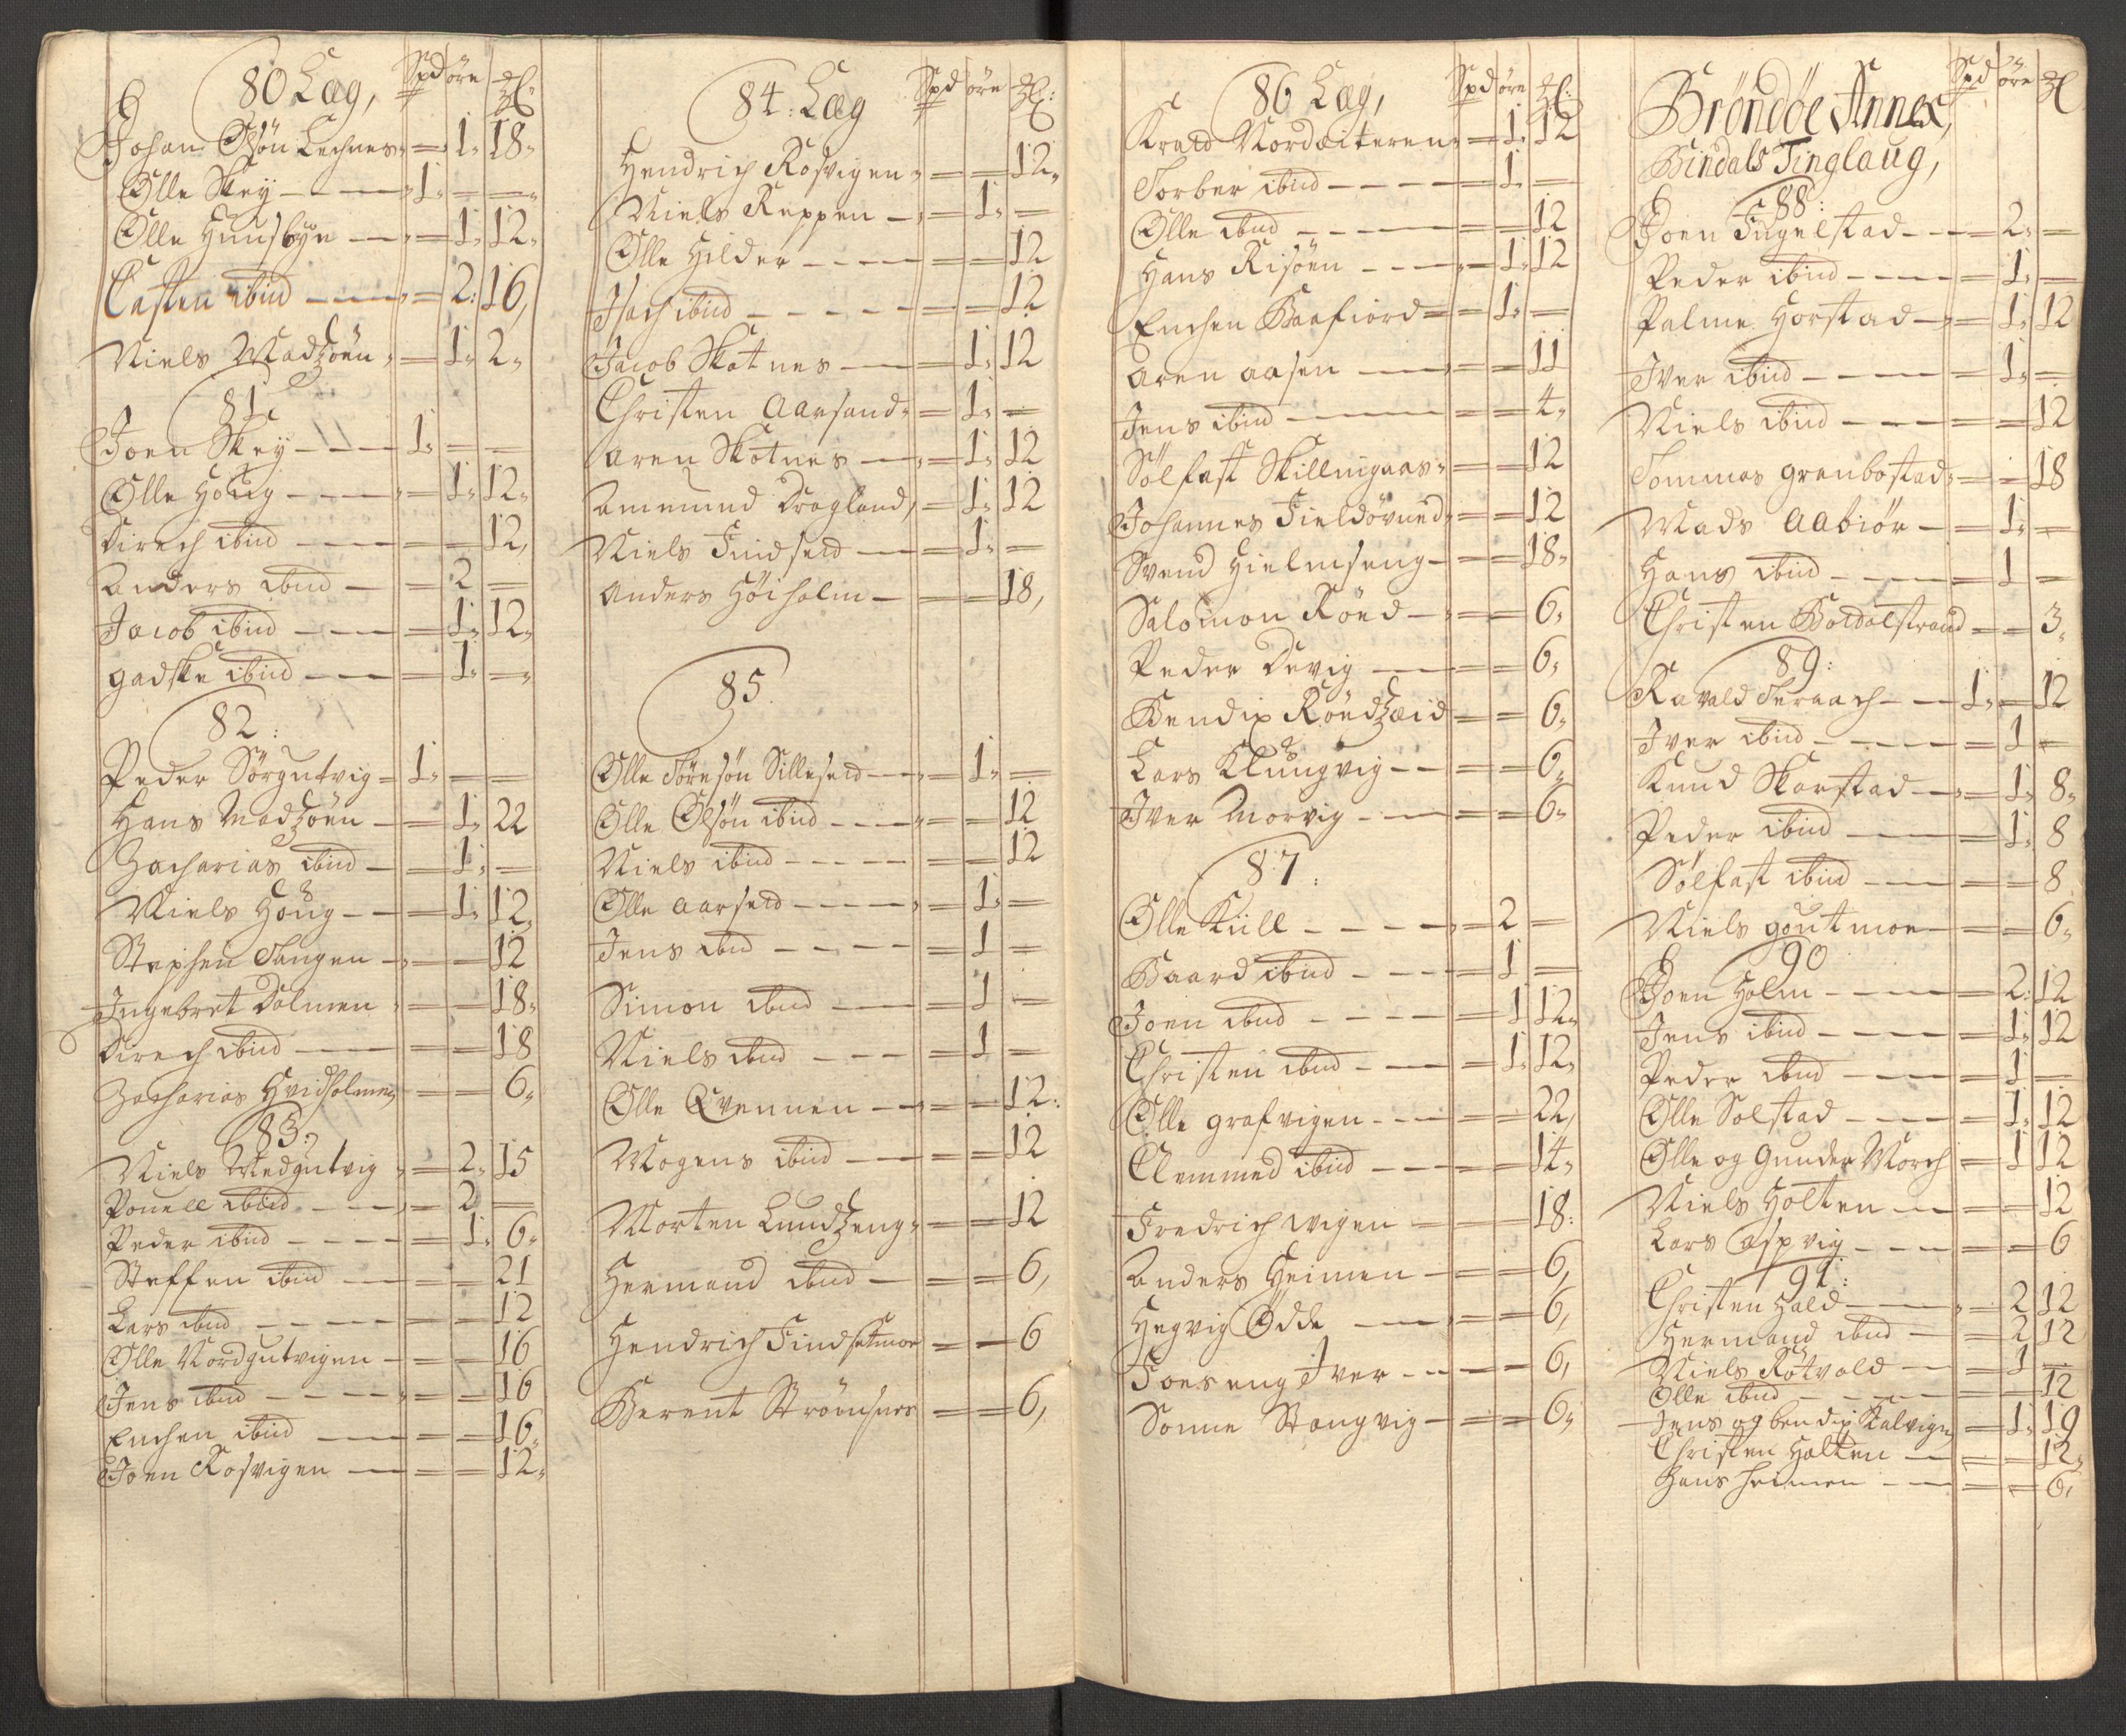 80 Læg, Spd öre
Johan Olsön Lechnes = 1. 18.
Olle Skey 1. = =
Olle Huusbye = 1. 12.
Casten ibiid = 2. 16,
Niels Madzöen = 1. 2.
81.
Joen Skey 1. = =
Olle Houg = 1. 12.
Direch ibiid = = 12,
Anders ibiid = 2 =
Jacob ibiid = 1. 12.
gadske ibiid = 1. =
82:
Peder Sörgutvig 1. = =
Hans Madzöen = 1. 22
Zacharias ibiid = 1. =
Niels Houg = 1. 12.
Stephen Tangen = = 12
Ingebret Dolmen = = 18.
Direch ibiid = = 18
Zacharias Hvidholmen = = 6.
83:
Niels Medgutvig = 2. 15
Pouell ibiid = 2 =
Peder ibiid = 1. 6.
Steffen ibiid = = 21
Lars ibiid = = 12
Olle Nordgutvigen = = 16
Jens ibiid = = 16
Enchen ibiid = = 16.
Joen Rosvigen = = 12.
84: Læg Spd öre
Hendrich Rosvigen = = 12.
Niels Reppen = 1. =
Olle Hilder = = 12
Isach ibiid = = 12
Jacob Skotnes = 1. 12
Christen Aarsand = 1. =
Aren Skotnes = 1. 12
Amemund Dragland, = 1. 12
Niels Findseid = 1. =
Anders Höiholm = = 18,
85.
Olle Töresön Silleseid = 1. =
Olle Olsön ibiid = = 12
Niels ibiid = = 12
Olle Aarseid = 1. =
Jens ibid = 1 =
Simon ibiid = 1 =
Niels ibiid = 1 =
Olle Qvennen = = 12:
Mogens ibiid = = 12
Morten Lundzeng = = 12
Hermand ibiid = = 6,
Hendrich Findsetmoe = = 6
Berent Strömsnes = = 6,
86 Læg, Spd öre
Knud Nordeiteren = 1. 12
Torber ibiid = 1. =
Olle ibiid = = 12
Hans Risöen = 1. 12
Enchen Baafiord = 1. =
Aren Aasen = = 11
Jens ibiid = = 4.
Sölfast Skillingaas = = 12
Johannes Fieldövned = = 12
Svend Hielmseng = = 18.
Salomon Röed = = 6.
Peder Devig = = 6.
Bendix Röedzeid = = 6.
Lars Klungvig = = 6.
Iver Morvig = = 6.
87:
Olle Kiill = 2 =
Baard ibiid = 1 =
Joen ibiid = 1 12.
Christen ibiid = 1. 12.
Olle grafvigen = = 22,
Clemmed ibiid = = 14.
Fredrich vigen = = 18:
Anders Heimen = = 6,
Hegvig Odde = = 6,
Foeseng Iver = = 6,
Sonne Stangvig = = 6.
Bröndöe Annex, Spd öre
Bindals Tinglaug,
88:
Joen Fugelstad = 2. =
Peder ibiid = 1. =
Palme Horstad = 1. 12
Iver ibiid = 1. =
Niels ibiid = = 12
Tommas grenbostad = = 18
Mads Aabiör = 1. =
Hans ibiid = 1 =
Christen Boldalstrand = = 3.
89:
Ravald Teraach 1. = 12
Iver ibiid = 1 =
Knud Skarstad = 1. 8.
Peder ibiid = 1. 8
Sölfast ibiid = = 8
Niels goutmoe = = 6.
90
Joen Holm = 2. 12
Jens ibiid = 1. 12
Peder ibiid = 1 =
Olle Solstad = 1. 12
Olle og Gunder Morch = 1 12
Niels Holten = = 12
Lars aspvig = = 6
91:
Christen Hald = 2 12
Hermand ibiid = 2 12
Niels Rotvold = 1 =
Olle ibiid = = 12
Jens og bendix Kalvign = 1. 19
Christen Halten = = 12.
Hans heimen = = 6,